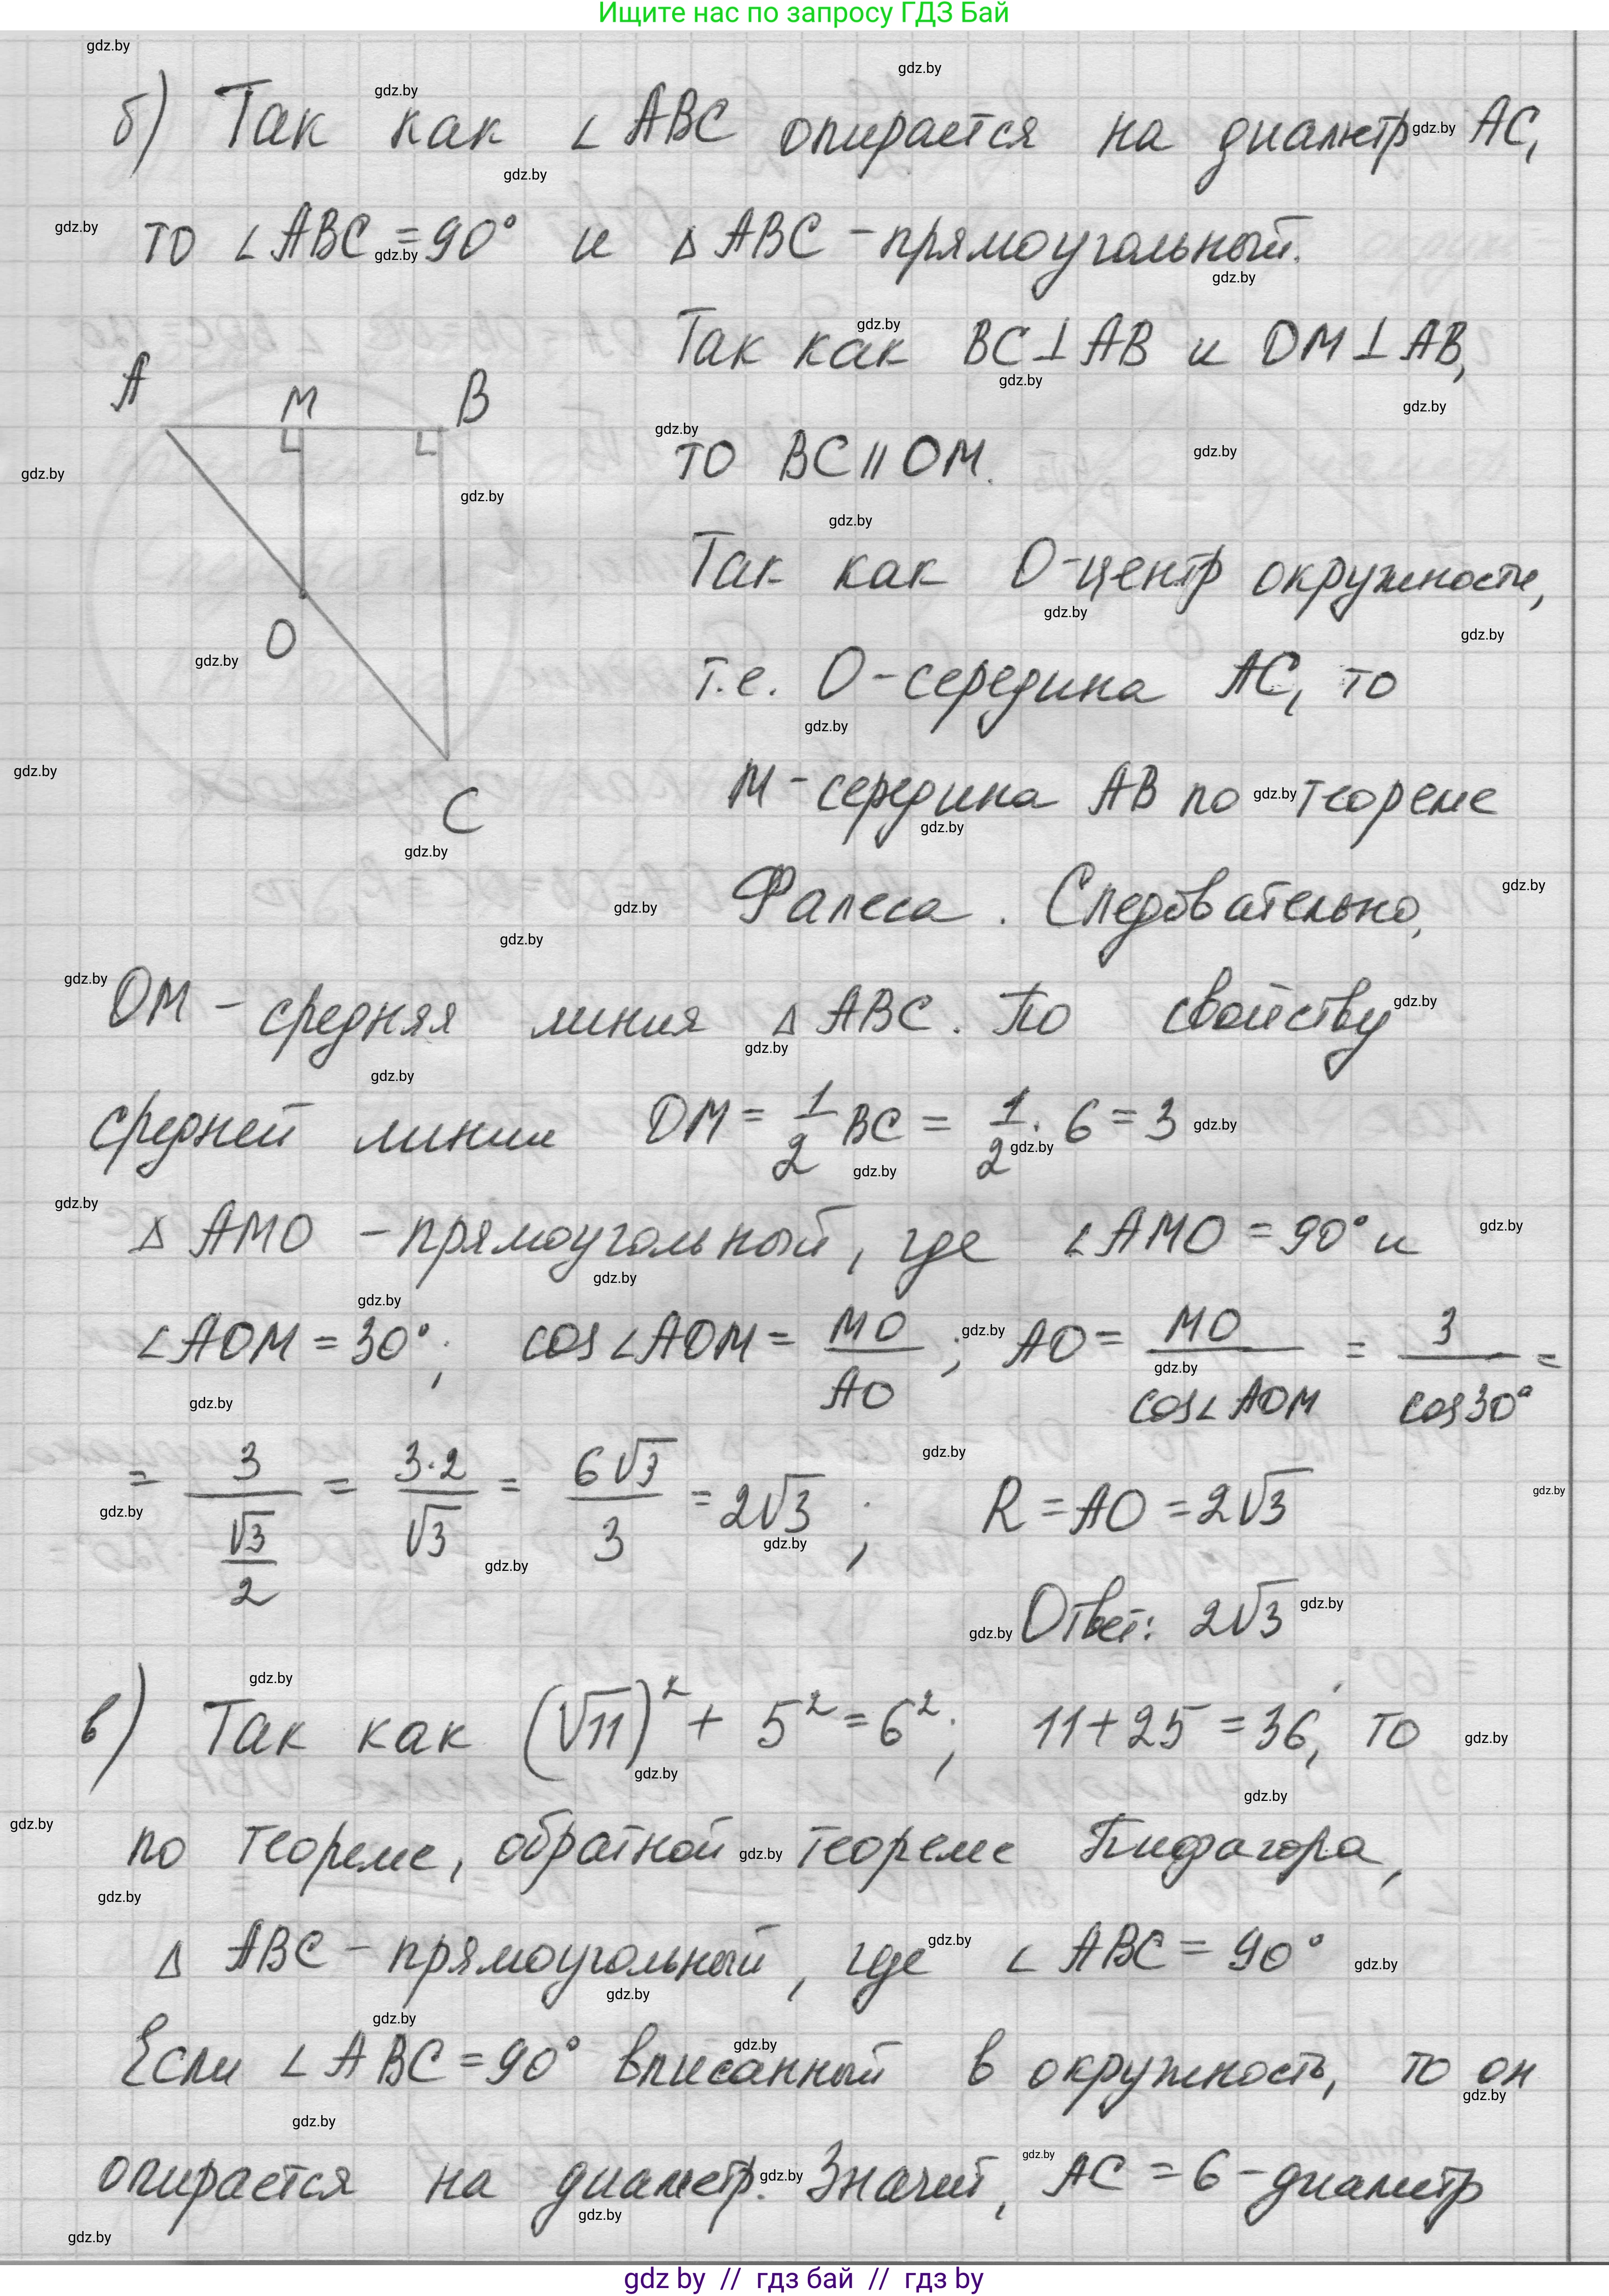 Ищите нас по запросу ГДЗ Бай
б) Так как ∠ABC опирается на диаметр AC,
то ∠ABC = 90° и △ABC - прямоугольный.
Так как BC ⊥ AB и OM ⊥ AB,
то BC || OM.
A M B
O
C
Так как O - центр окружности,
т.е. O - середина AC, то
M - середина AB по теореме
Фалеса. Следовательно,
OM - средняя линия △ABC. По свойству
средней линии OM = 1/2 BC = 1/2 · 6 = 3
△AMO - прямоугольный, где ∠AMO = 90° и
∠AOM = 30°; cos∠AOM = MO/AO; AO = MO/cos∠AOM = 3/cos30° =
= 3/(√3/2) = 3·2/√3 = 6√3/3 = 2√3; R = AO = 2√3
Ответ: 2√3
в) Так как (√11)² + 5² = 6²; 11+25 = 36, то
по теореме, обратной теореме Пифагора,
△ABC - прямоугольный, где ∠ABC = 90°
Если ∠ABC = 90° вписанный в окружность, то он
опирается на диаметр. Значит, AC = 6 - диаметр
gdz by // гдз бай // гдз by